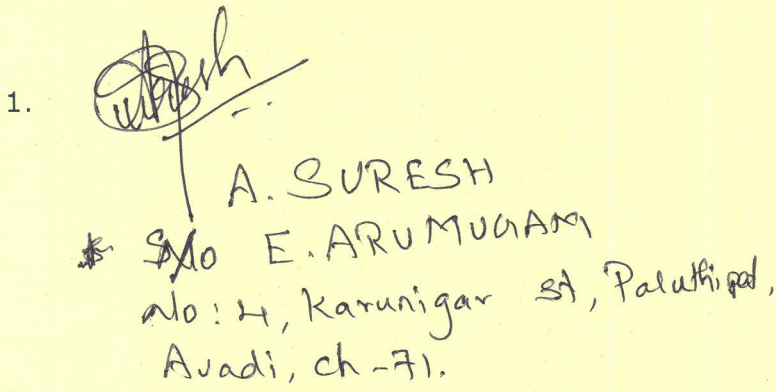 1.
A. SURESH
S/o E. ARUMUGAM
No: 4, Karunigar st, Paluthipet,
Avadi, ch-71.